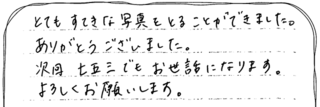 とてもすてきな写真をとることができました。
ありがとうございました。
次回 七五三でもお世話になります。
よろしくお願いします。